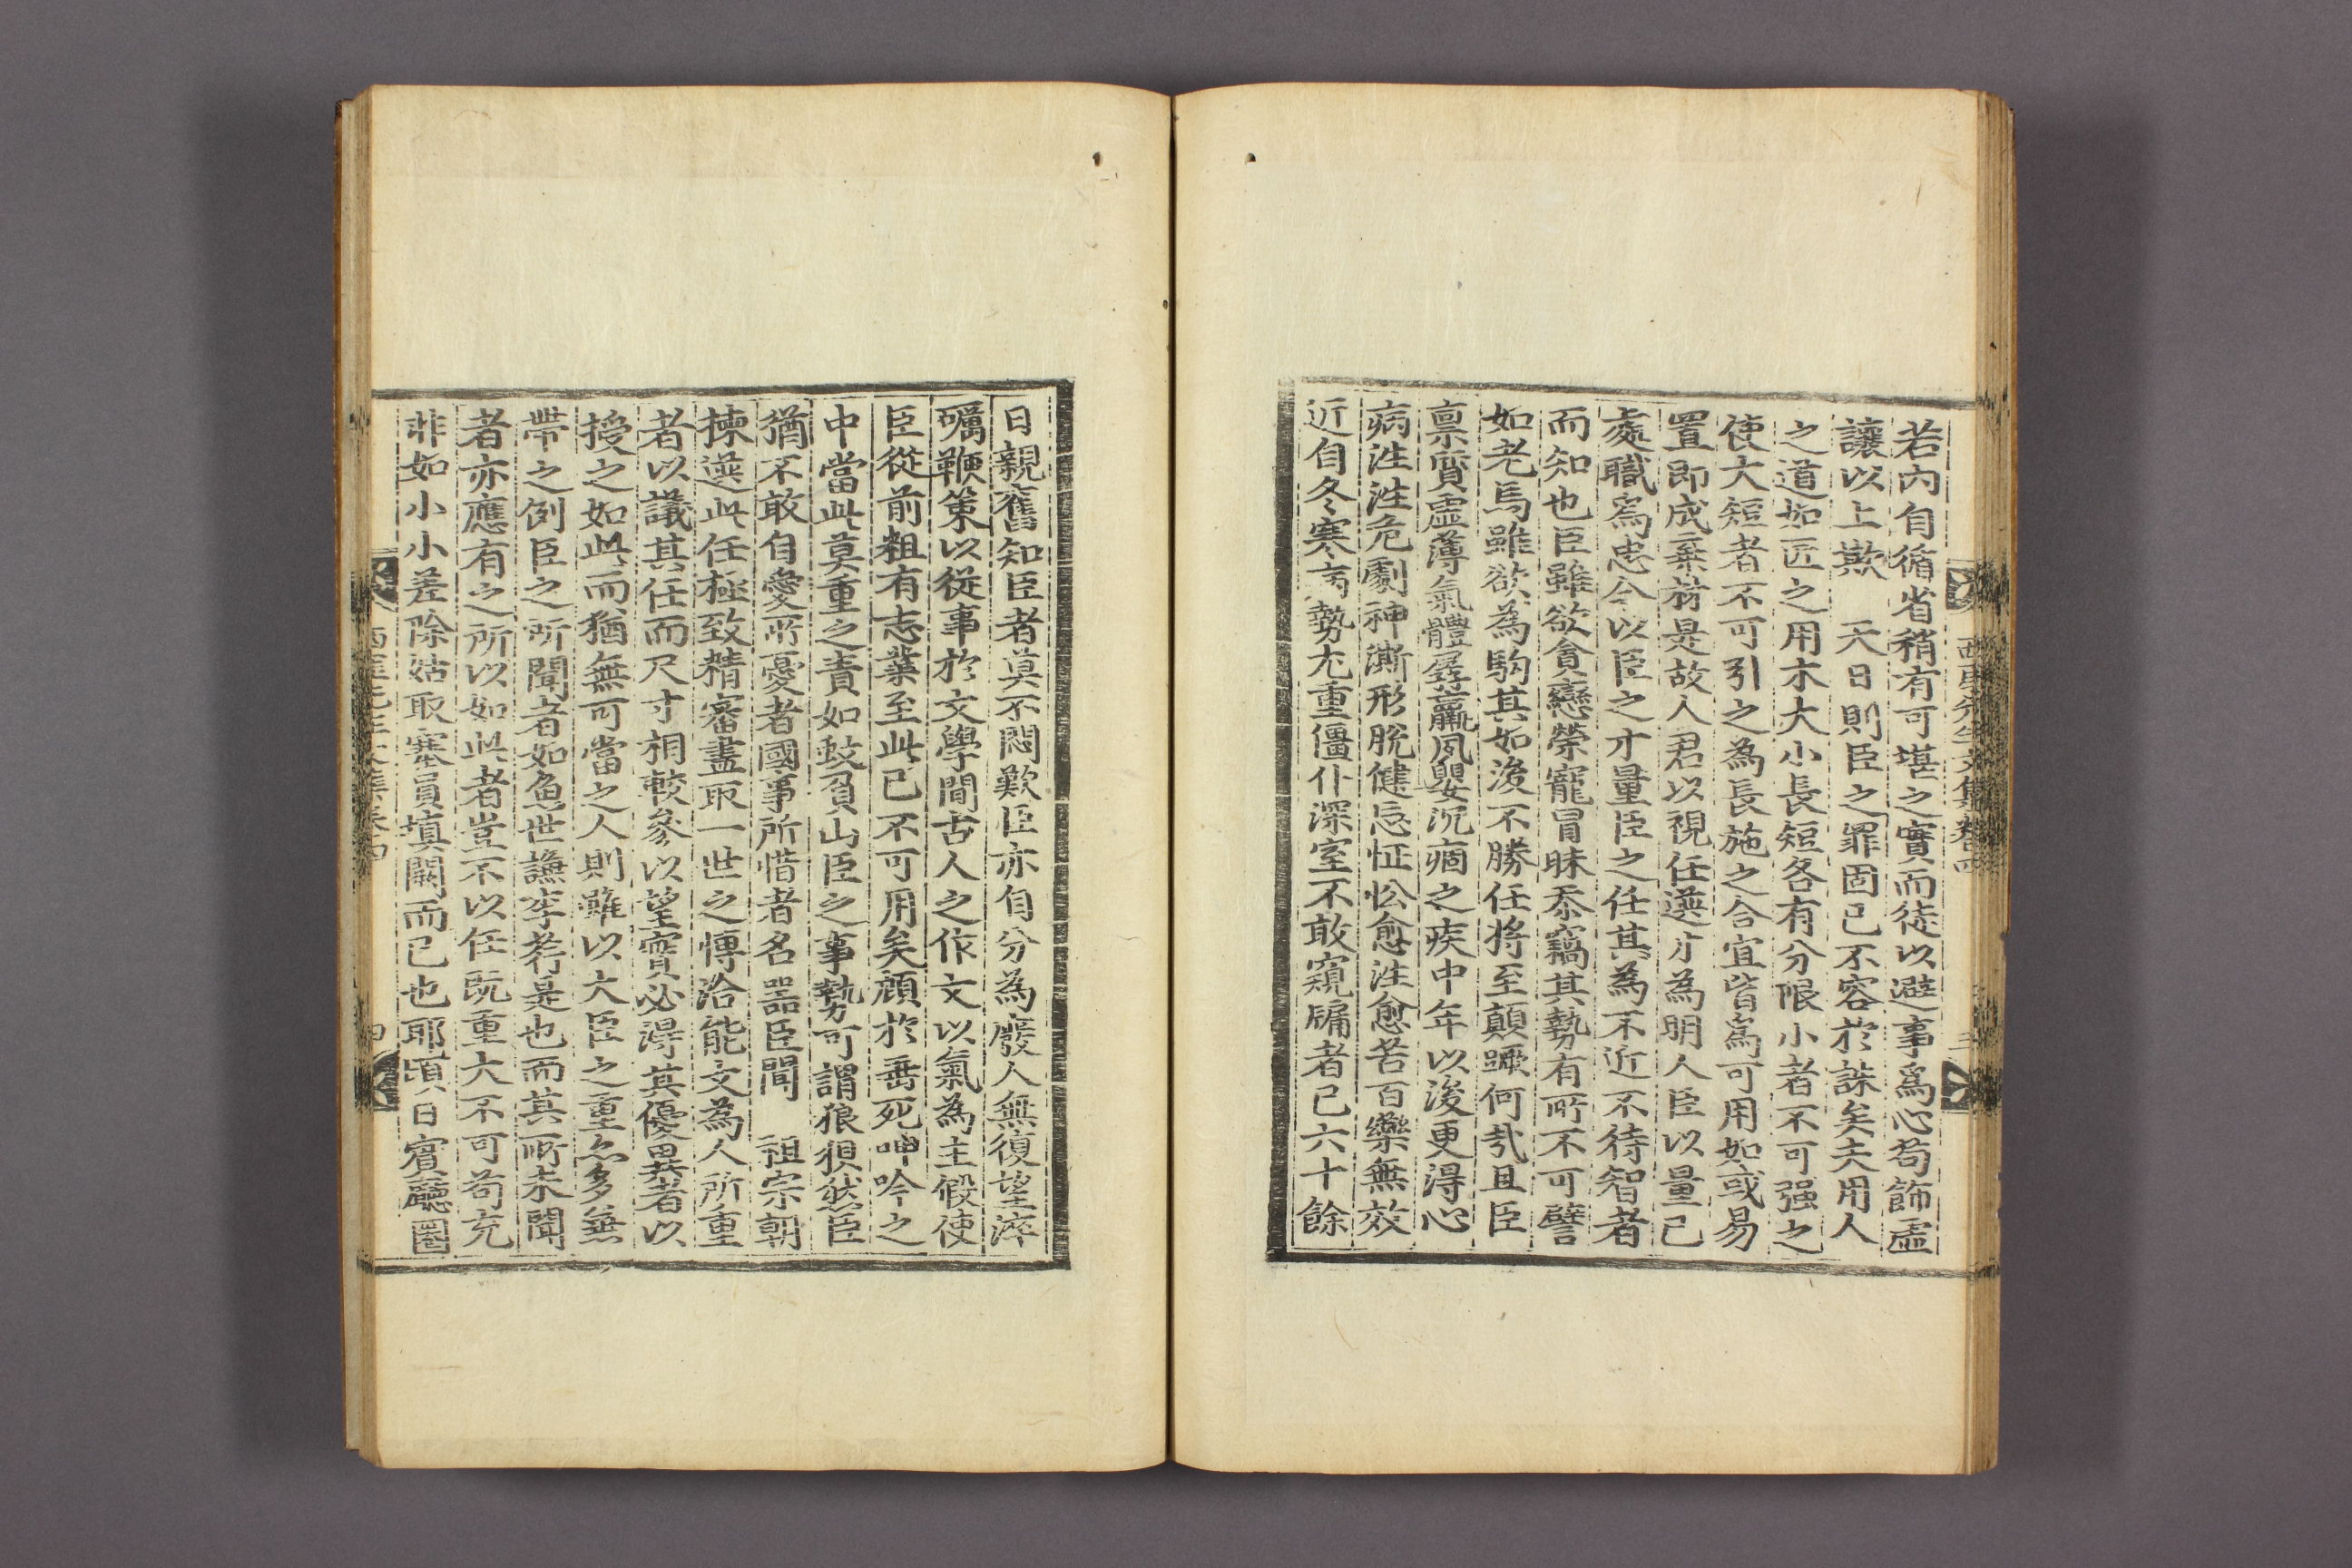 若內自循省稍有可堪之實而徒以避事爲心苟飾虛
讓以上欺　天日則臣之罪固已不容於誅矣夫用人
之道如匠之用木大小長短各有分限小者不可强之
使大短者不可引之為長施之合宜皆爲可用如或易
置即成棄材是故人君以視任選才為明人臣以量己
處職爲忠今以臣之才量臣之任其為不近不待智者
而知也臣雖欲貪戀榮寵冒昧忝竊其勢有所不可譬
如老馬雖欲為駒其如後不勝任將至顚蹶何㢤且臣
禀質虛薄氣體孱羸夙嬰沉痼之疾中年以後更得心
病泩泩危劇神澌形脫健忘怔忪愈泩愈苦百藥無效
近自冬寒病勢尤重僵仆深室不敢窺牖者已六十餘
西厓先生文集卷四　三
日親舊知臣者莫不悶歎臣亦自分為廢人無復望淬
礪鞭策以從事於文學間古人之作文以氣為主假使
臣從前粗有志業至此已不可用矣顧於垂死呻吟之
中當此莫重之責如蚊負山臣之事勢可謂狼狽然臣
猶不敢自愛所憂者國事所惜者名器臣聞　祖宗朝
揀選此任極致精審盡取一世之博洽能文為人所重
者以議其任而尺寸相較參以望實必得其優異者以
授之如此而猶無可當之人則雖以大臣之重亦多無
帶之例臣之所聞者如魚世謙李荇是也而其所未聞
者亦應有之所以如此者豈不以任既重大不可苟充
非如小小差除姑取塞員塡闕而已也耶頃日賓廳圈
西厓先生文集卷四　四